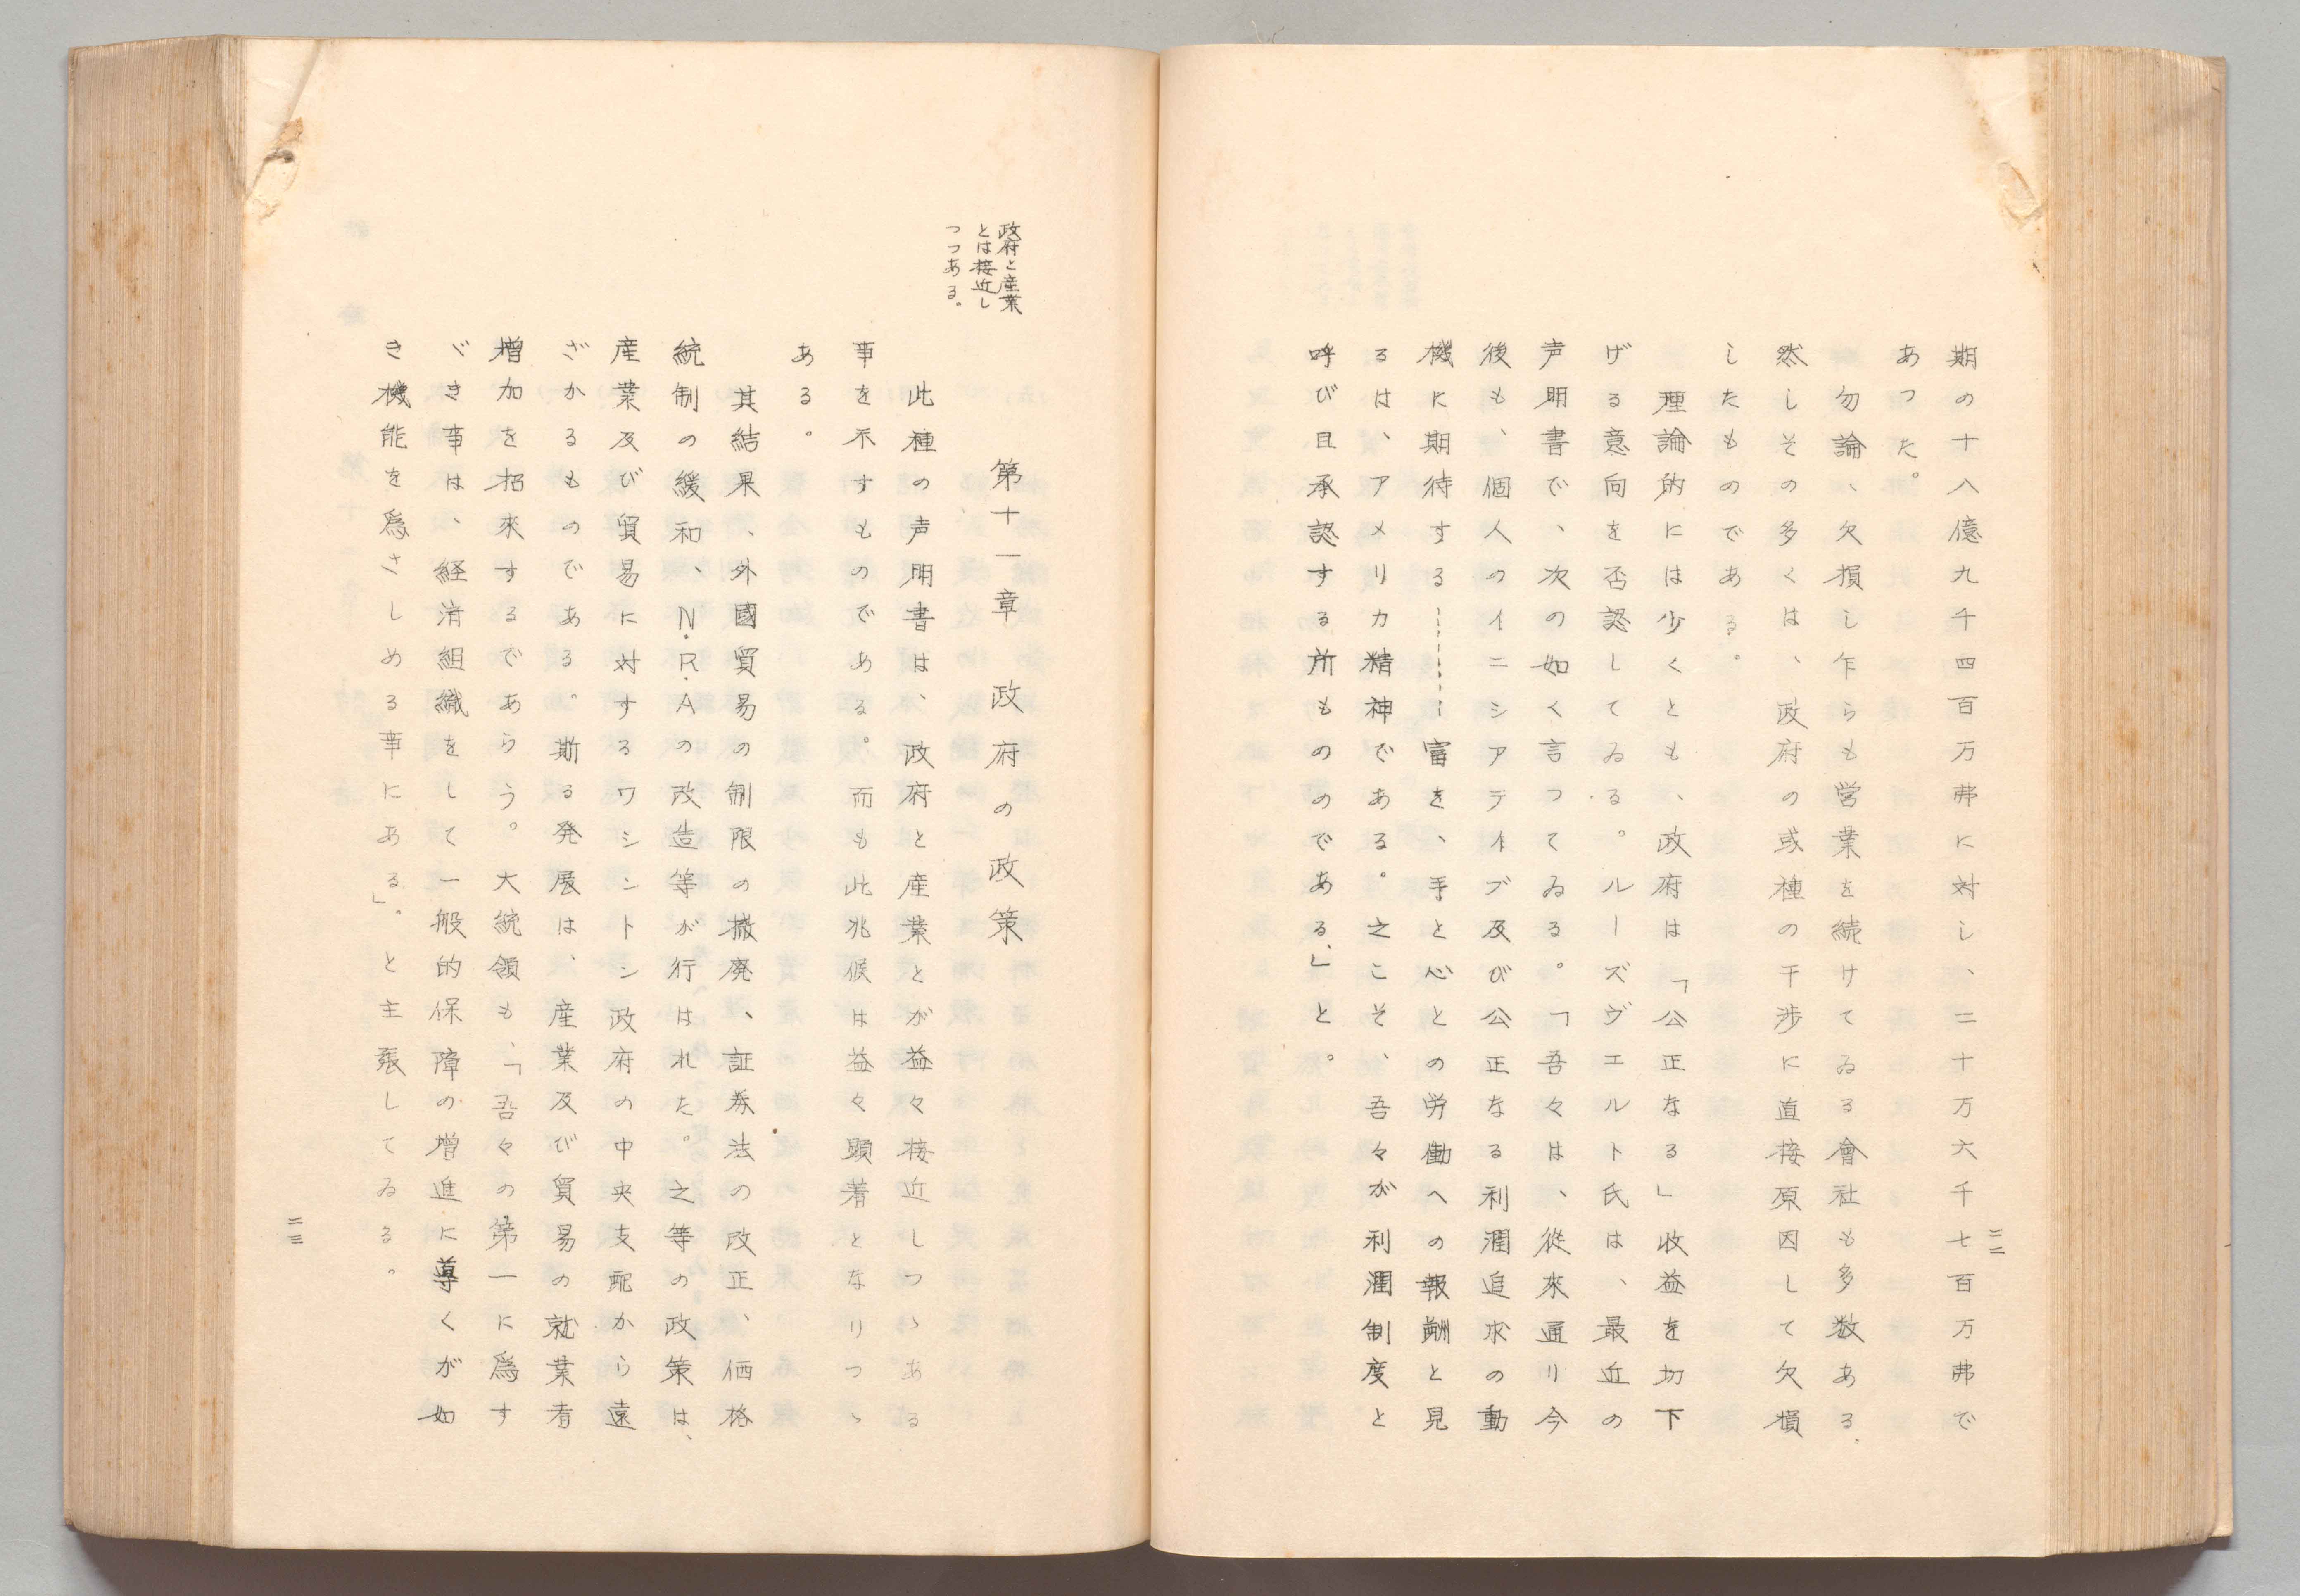 期の十八億九千四百万弗に対し、二十万六千七百万弗で
あつた。
勿論、欠損し乍らも営業を続けてゐる會社も多数ある
然しその多くは、政府の或種の干渉に直接原因して欠損
したものである。
理論的には少くとも、政府は「公正なる」收益を切下
げる意向を否認してゐる。ルーズヴエルト氏は、最近の
声明書で、次の如く言つてゐる。「吾々は、從來通リ今
後も、個人のイニシアテイブ及び公正なる利潤追求の動
機に期待する……富を、手と心との労働への報酬と見
るは、アメリカ精神である。之こそ、吾々が利潤制度と
呼び且承認する所もののである、」と。
二二
政府と産業
とは接近し
つつある。
第十一章 政府の政策
此種の声明書は、政府と産業とが益々接近しつゝある
事を示すものである。而も此兆候は益々顕着となりつゝ
ある。
其結果、外國貿易の制限の撤廃、証券法の改正、価格
統制の緩和、N.R.Aの改造等が行はれた。之等の政策は、
産業及び貿易に対するワシントン政府の中央支配から遠
ざかるものである。斯る発展は、産業及び貿易の就業者
増加を招來するであらう。大統領も、「吾々の第一に爲す
べき事は、経済組織をして一般的保障の増進に導くが如
き機能を爲さしめる事にある」。と主張してゐる。
二三